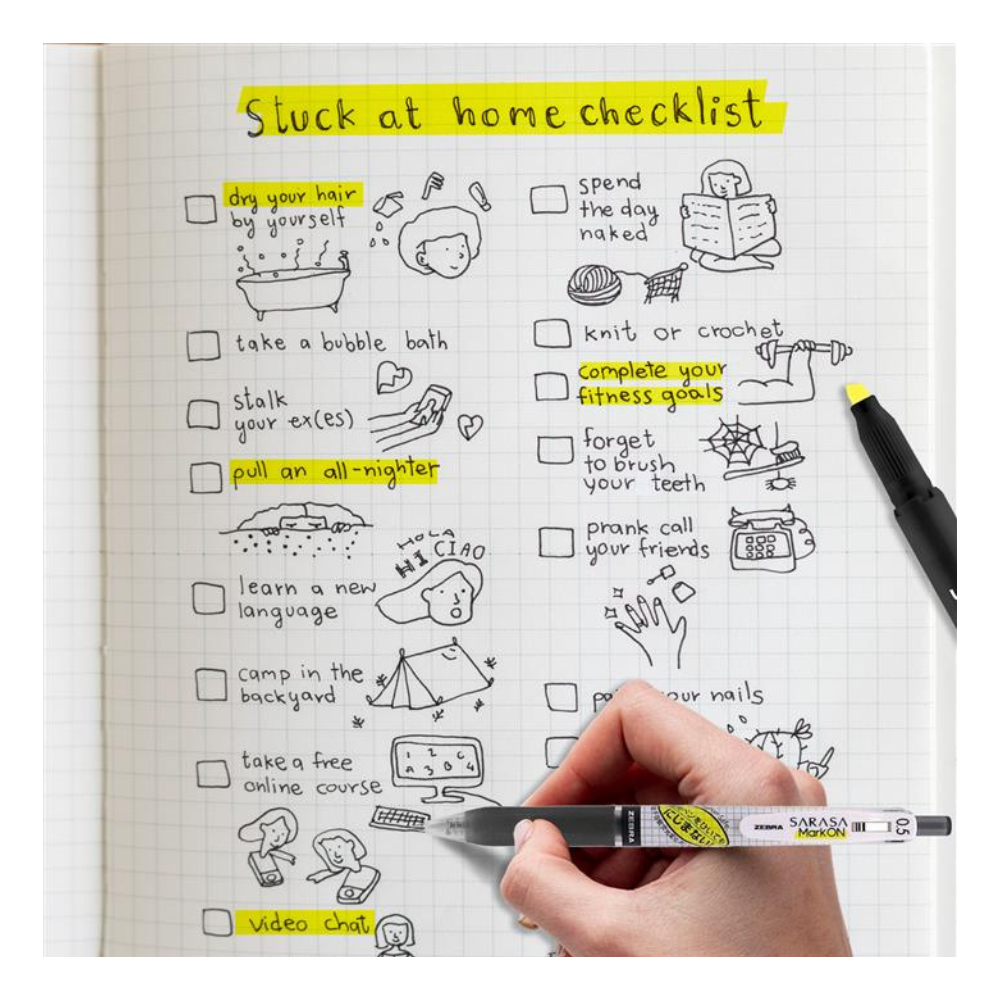 Stuck at home checklist
dry your hair
by yourself
take a bubble bath
stalk
your ex(es)
pull an all-nighter
HOLA
HI CIAO
learn a new
language
camp in the
backyard
take a free
online course
1 2 C
A 3 B 4
video chat
spend
the day
naked
knit or crochet
complete your
fitness goals
forget
to brush
your teeth
prank call
your friends
nails
ZEBRA
にじまない!
ZEBRA
SARASA
MarkON
0.5